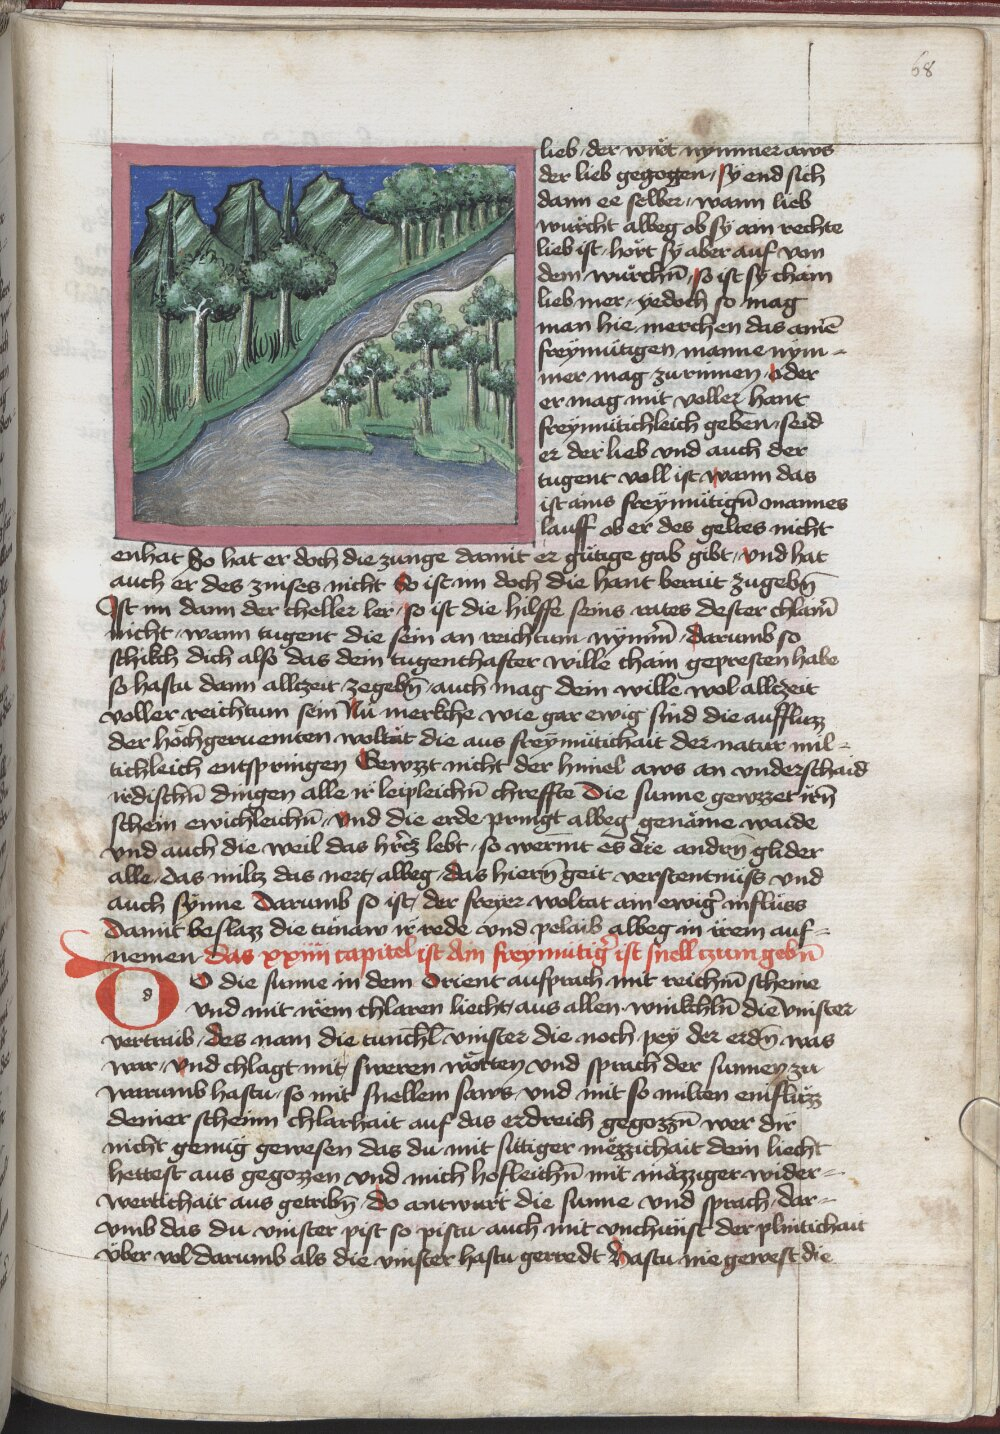 68
lieb · der wirt nymmer aws
der lieb gezogen / sy end sich
dann ee selber / wann lieb
würcht albeg ob sy ain rechte
lieb ist · hört sy aber auf von
dem würchn̄ / so ist sy chain
lieb mer / yedoch so mag
man hie merchen das ainē
freymütigen manne nym-
mer mag zurinnen / oder
er mag mit voller hant
freymütichleich geben / seid
er der lieb vnd auch der
tugent voll ist wann das
ist ains freymütign̄ mannes
lauff ob er des geltes nicht
enhat So hat er doch die zunge damit er gütige gab gibt / vnd hat
auch er des zinses nicht So ist im doch die hant berait zugebn̄
Ist im dann der cheller ler / so ist die hilffe seins rates dester chlain̄
nicht / wann tugent die sein an reichtum nym̄m̄ / darumb so
schikch dich also das dein tugenthafter wille chain gepresten habe
so hastu dann alltzeit zegebn̄ / auch mag dein wille wol alltzeit
voller reichtum sein Nu merkche wie gar ewig sind die ausflüzz
der höchgeruemten woltät die aus freymütichait der natur mil-
tichleich entspringen Gewzzt nicht der himel aws an vnderschaid
irdischn̄ dingen alle ir leipleichn̄ chreffte Die sunne gewzzet irn̄
schein ewichleichn̄ / vnd die erde pringt albeg genäme waide
vnd auch die weil das hercz lebt / so wermt es die andrn̄ glider
alle / das miltz das nert / albeg / das hiern̄ geit verstentnüss vnd
auch synne Darumb so ist / der freyer woltat ain ewigr̄ influss
Damit beslazz die tunaw ir rede vnd pelaib albeg in irem auf-
nemen Das xxiiij capitel ist Ain freymütigr̄ ist snell tzum gebn̄
DO die sunne in dem Orient aufsprach mit reichn̄ scheine
vnd mit irem chlaren liecht / aus allen winkchln̄ die vinster
vertraib / des nam die tunchl̄ vinster die noch pey der erdn̄ was
war / vnd chlagt mit sweren wörten vnd sprach der sunnen zu
warumb hastu / so mit snellem saws / vnd mit so milten einflüzz
deiner scheinn chlarhait auf das erdreich gegozzn̄ wer dir
nicht genüg gewesen das du mit sittiger mëzzichait dein liecht
hettest aus gegozzen vnd mich hofleichn̄ mit mäzziger wider-
wertichait aus getribn̄ / do antwurt die sunne vnd sprach / dar-
vmb das du vinster pist so pistu auch mit vnchunst der plintichait
über vol darumb als die vinster hastu geredt Hastu nie gewest die